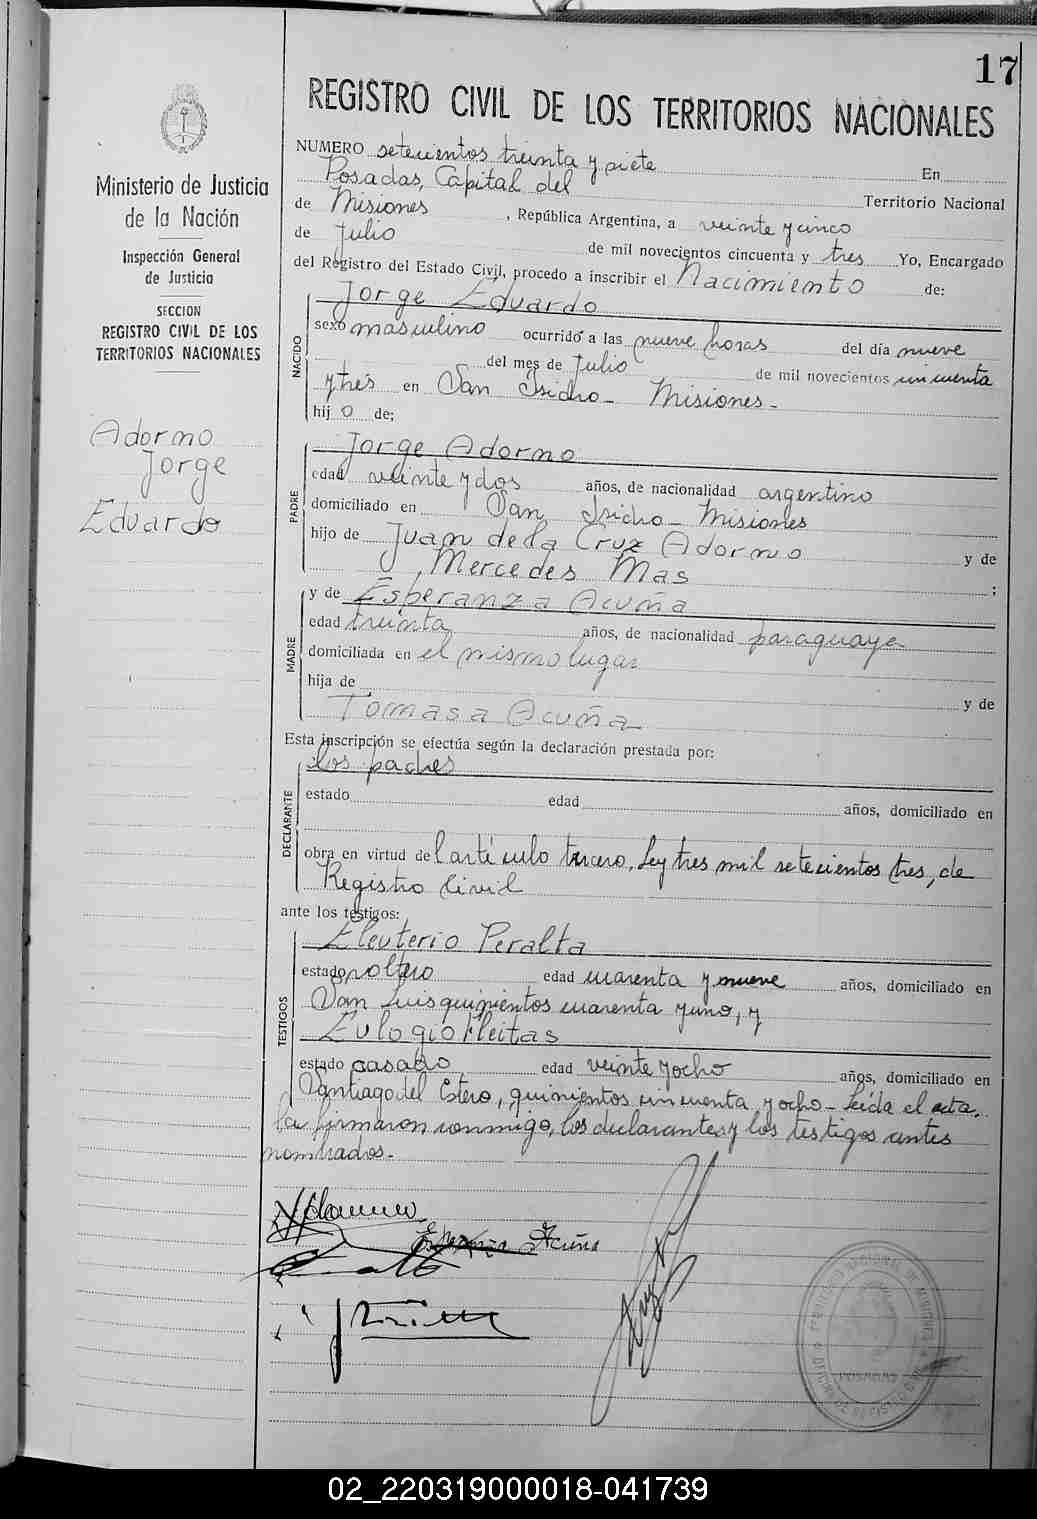 17
REGISTRO CIVIL DE LOS TERRITORIOS NACIONALES
Ministerio de Justicia
de la Nación
Inspección General
de Justicia
SECCION
REGISTRO CIVIL DE LOS
TERRITORIOS NACIONALES
Adorno
Jorge
Eduardo
NUMERO setecientos treinta y siete En
Posadas, Capital del Territorio Nacional
de Misiones, República Argentina, a veinte y cinco
de Julio de mil novecientos cincuenta y tres Yo, Encargado
del Registro del Estado Civil, procedo a inscribir el Nacimiento de:
NACIDO
Jorge Eduardo
sexo masculino ocurrido a las nueve horas del día nueve
del mes de Julio de mil novecientos cincuenta
y tres en San Isidro - Misiones -
hij o de;
PADRE
Jorge Adorno
edad veinte y dos años, de nacionalidad argentino
domiciliado en San Isidro - Misiones
hijo de Juan de la Cruz Adorno y de
Mercedes Mas ;
MADRE
y de Esperanza Acuña
edad treinta años, de nacionalidad paraguaya
domiciliada en el mismo lugar
hija de y de
Tomasa Acuña
Esta inscripción se efectúa según la declaración prestada por:
DECLARANTE
los padres
estado edad años, domiciliado en
obra en virtud del artículo tercero, Ley tres mil setecientos tres, de
Registro Civil
ante los testigos:
TESTIGOS
Eleuterio Peralta
estado soltero edad cuarenta y nueve años, domiciliado en
San Luis quinientos cuarenta y uno, y
Eulogio Fleitas
estado casado edad veinte y ocho años, domiciliado en
Santiago del Estero, quinientos cincuenta y ocho - Leída el acta,
la firmaron conmigo, los declarantes y los testigos antes
nombrados.-
Esperanza Acuña
POSADAS
02_220319000018-041739